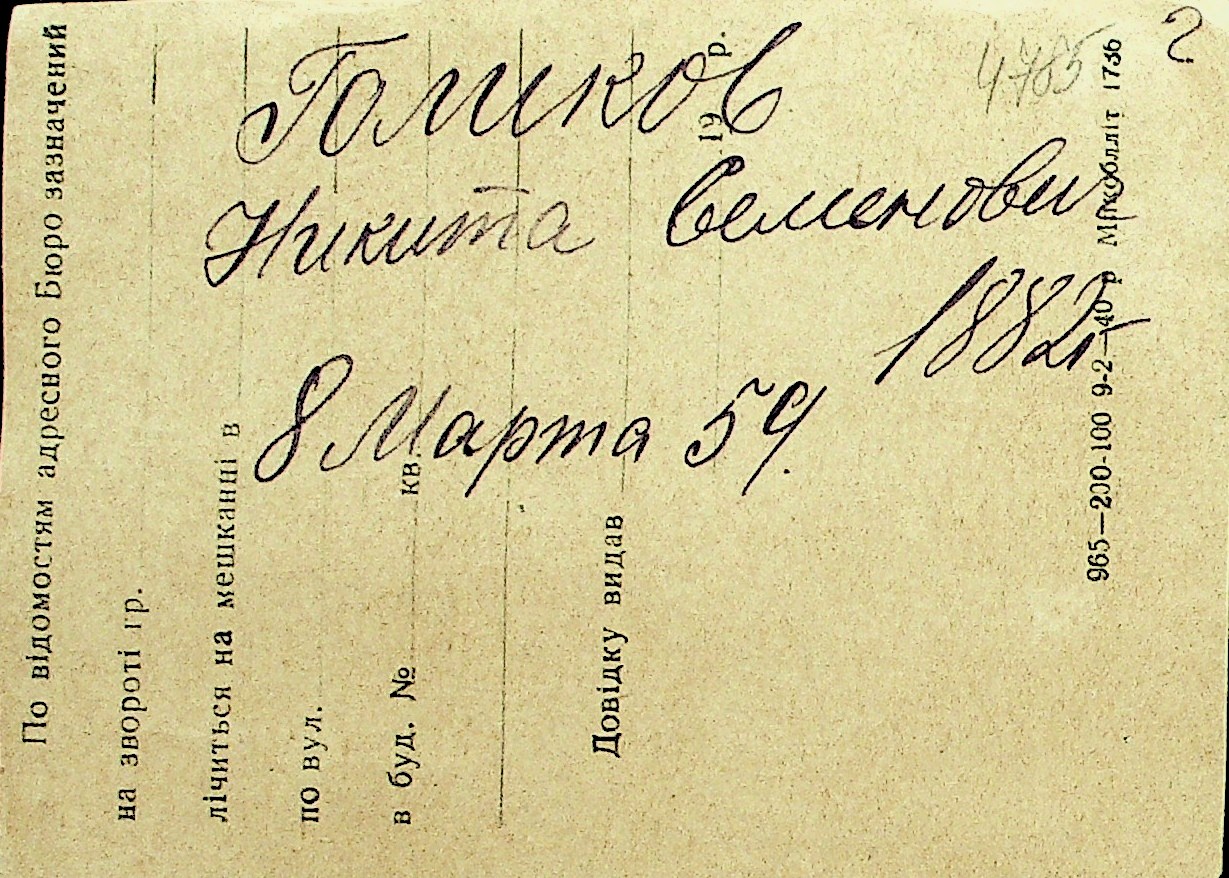 4785
Голиков
Никита Семенович
1882г
8 Марта 59.
По відомостям адресного Бюро зазначений
на звороті гр.
лічиться на мешканні в
по вул.
в буд. № кв.
19 р.
Довідку видав
965—200-100 9-2—40 р Микоблліт 1736
?